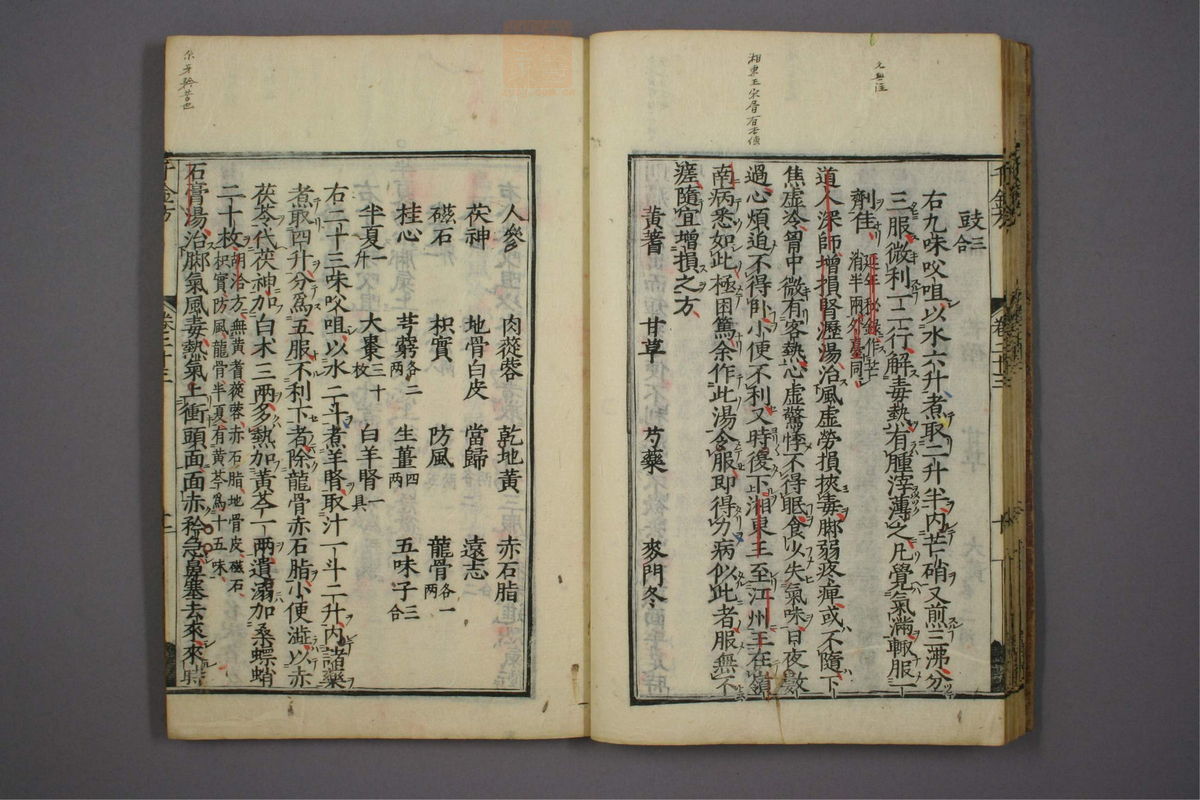 豉三合
右九味㕮咀以水六升煮取二升半内芒硝又煎三沸分
三服微利一二行解毒熱有腫滓薄之凡覺氣滿輙服一
劑佳延年秘錄作芒
消半兩外臺同
道人深師增損腎瀝湯治風虛勞損挾毒脚弱疼痺或不隨下
焦虛冷胷中微有客熱心虛驚悸不得眠食少失氣味日夜數
過心煩迫不得卧小便不利又時復下湘東王至江州王在嶺
南病悉如此極困篤余作此湯令服即得力病似此者服無不
瘥隨宜增損之方
黃蓍 甘草 芍藥 麥門冬
人參 肉蓯蓉 乾地黃 赤石脂
茯神 地骨白皮 當歸 遠志
磁石 枳實 防風 龍骨各一兩
桂心 芎藭各二兩 生薑四兩 五味子三合
半夏一升 大棗三十枚 白羊腎一具
右二十三味㕮咀以水二斗煮羊腎取汁一斗二升内諸藥
煮取四升分爲五服不利下者除龍骨赤石脂小便澁以赤
茯苓代茯神加白术三兩多熱加黃芩一兩遺溺加桑螵蛸
二十枚胡洽方無黃耆蓯蓉赤石脂地骨皮磁石
枳實防風龍骨半夏有黃芩爲十五味
石膏湯治脚氣風毒熱氣上衝頭面面赤矜急鼻塞去來來時
千金方 卷二十三
湘東王宋書有本傳